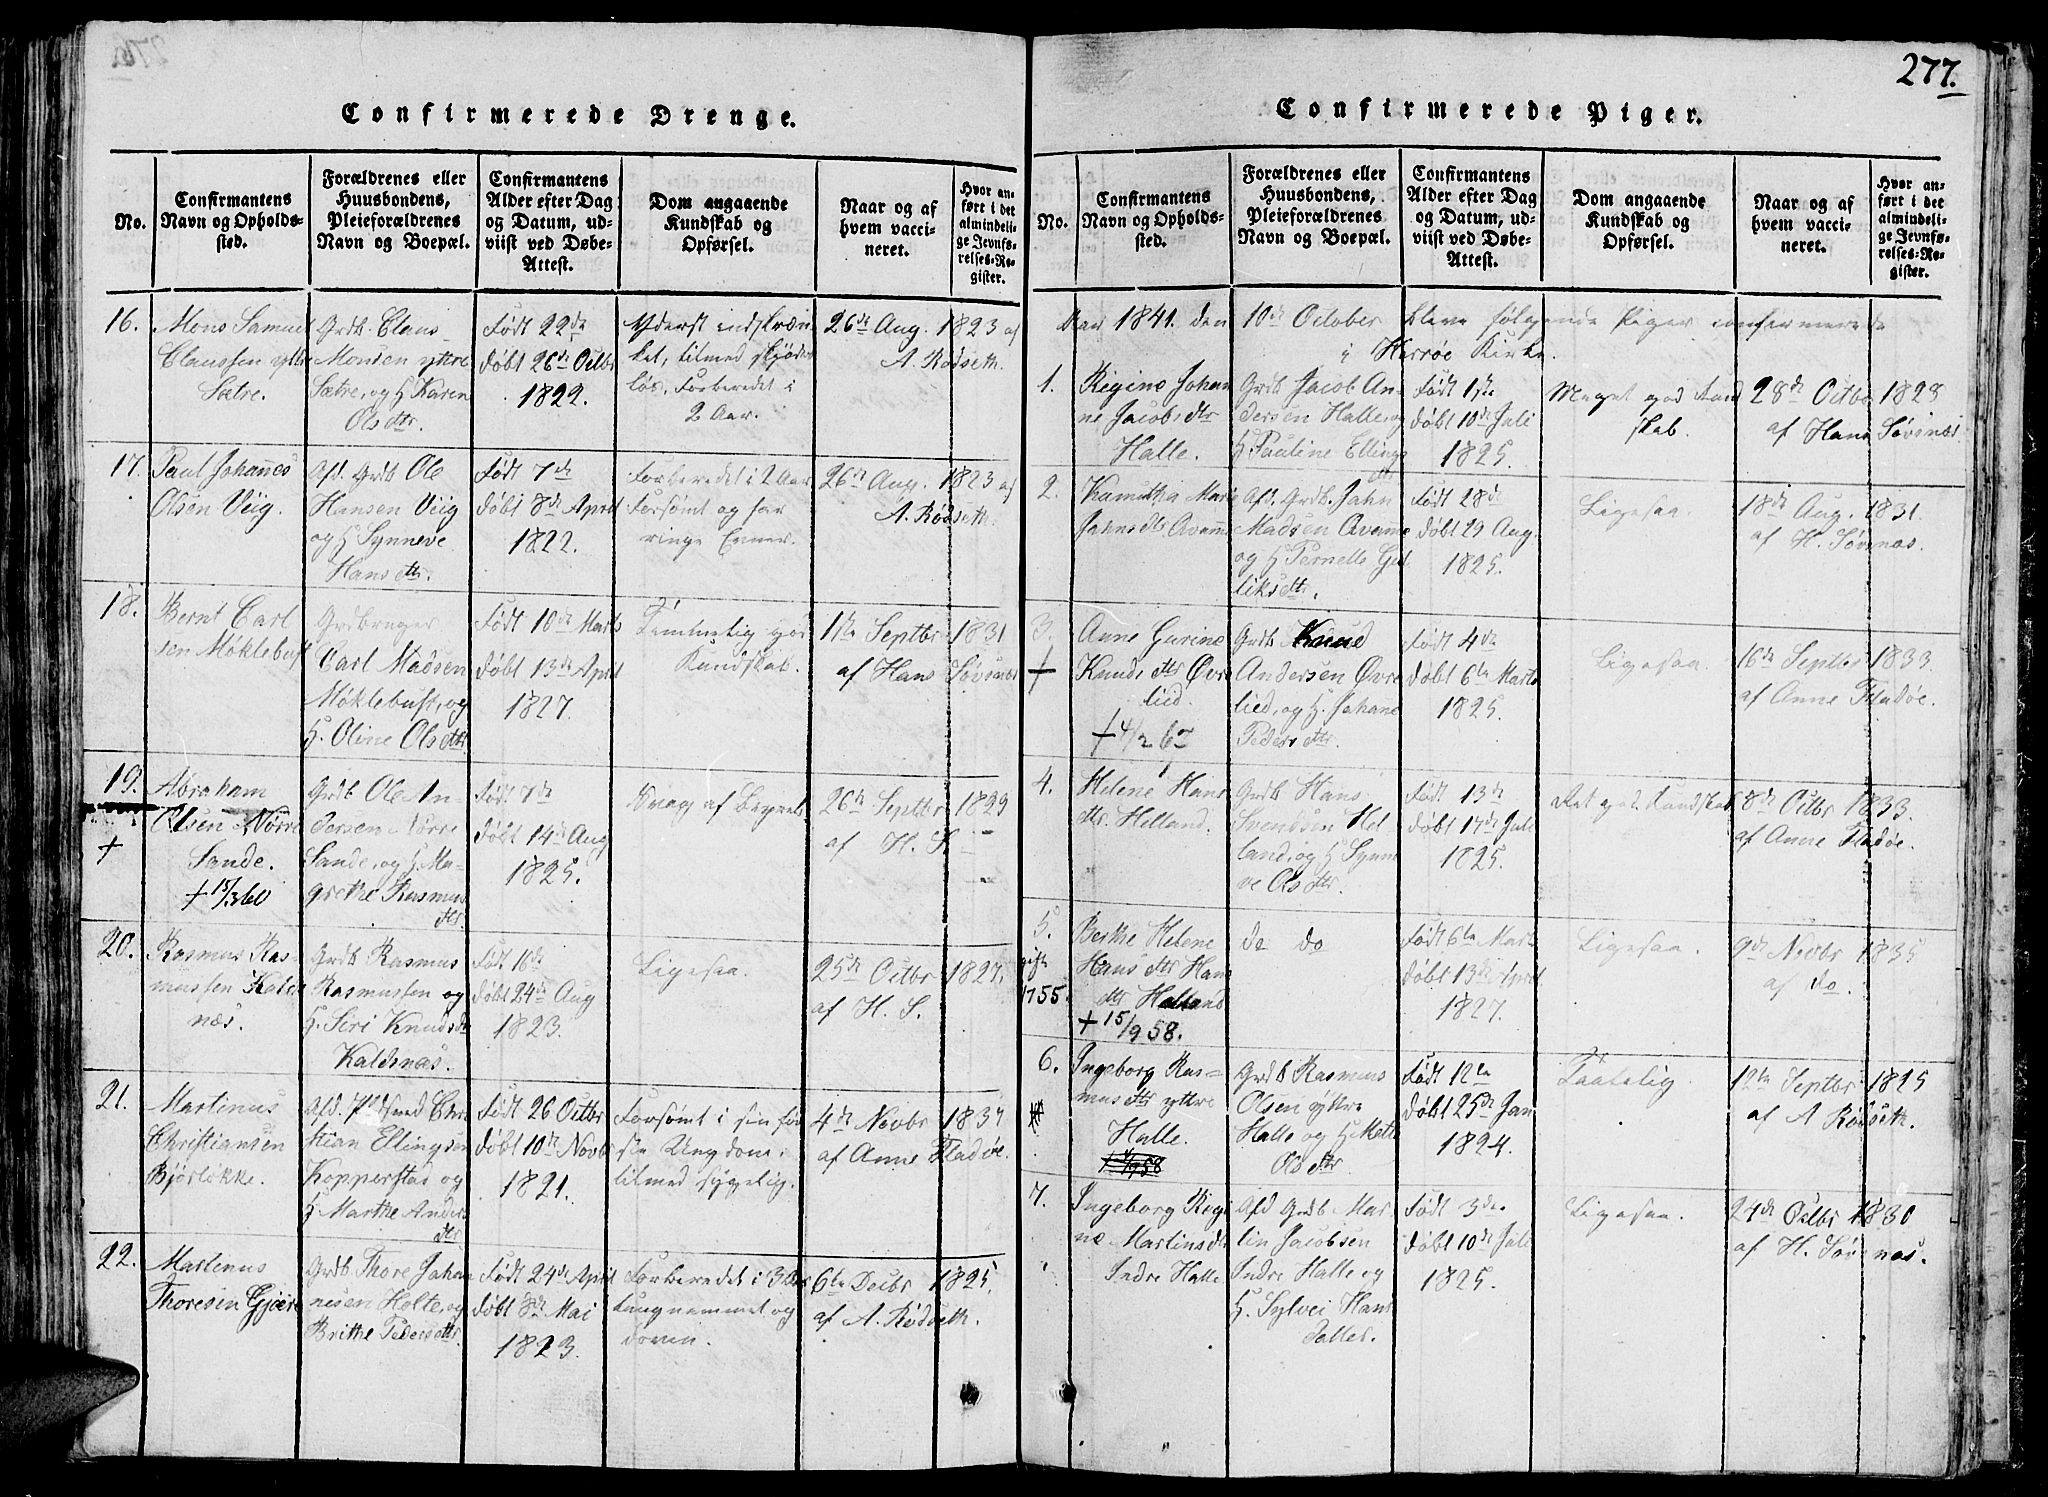 277.
Confirmerede Drenge.
No.
Confirmantens
Navn og Opholds-
sted.
Forældrenes eller
Huusbondens,
Pleieforældrenes
Navn og Boepæl.
Confirmantens
Alder efter Dag
og Datum, ud-
viist ved Døbe-
Attest.
Dom angaaende
Kundskab og
Opførsel.
Naar og af
hvem vacci-
neret.
Hvor an-
ført i det
almindeli-
ge Jevnfø-
relses-Re-
gister.
16.
Mons Samuel
Claussen ytre
Sætre.
Grdb. Claus
Monsen yttre
Sætre, og H Karen
Olsdtr.
Født 22de
døbt 26de Octbr
1822.
Yderst indskræn
ket, tilmed skjødes
løs. Forberedet i
2 Aar.
26de Aug. 1823 af
A. Rødseth.
17.
Paul Johannes
Olsen Viig.
Afd. Grdb Ole
Hansen Viig
og H Synneve
Hansdtr.
Født 7de
døbt 8de April
1822.
Forberedet i 2 Aar
Forsømt og
ringe Evner.
26de Aug. 1823 af
A. Rødseth.
18.
Bernt Carl
sen Møklebust
Grdbruger
Carl Madsen
Møklebust, og
H. Oline Olsdtr.
Født 10de Marts
døbt 13de April
1827.
Temmelig god
Kundskab.
11te Septbr 1831
af Hans Søvsnæs
19.
+
Abraham
Olsen Nørre
Sande.
+ 15/3 60
Grdb. Ole An-
dersen Nørre
Sande, og H. Ma-
grethe Rasmus
dtr.
Født 7de
døbt 14de Aug
1825.
Svag af Begreb
26de Septbr 1829
af H. S.
20.
Rasmus Ras-
mussen
næs.
Grdb Rasmus
Rasmussen og
H. Siri Knudsdr
Kaldsnæs.
Født 16de
døbt 24de Aug
1823.
Ligesaa.
25de Octbr 1827.
af H. S.
21.
Martinus
Christiansen
Bjørløkke.
Afd. Chri
stian Ellingsen
Kopperstad og
H Marthe Anders
dtr
Født 26 Octbr
døbt 10de Novb
1821.
Forsømt i sin før
ste Ungdom,
tilmed sygelig.
4de Novbr 1837
af Anne Fladøe.
22.
Martinus
Thoresen Gjerde
Grdb. Thore Johan
nesen Holte, og
Brithe Pedersdtr
Født 24de April
døbt 8de Mai
1823.
Forberedet i 3 Aar
tungnemmet og
doven.
6te Decbr 1825.
af A. Rødseth.
Confirmerede Piger.
No.
Confirmantens
Navn og Opholds-
sted.
Forældrenes eller
Huusbondens,
Pleieforældrenes
Navn og Boepæl.
Confirmantens
Alder efter Dag
og Datum, ud-
viist ved Døbe-
Attest.
Dom angaaende
Kundskab og
Opførsel.
Naar og af
hvem vacci-
neret.
Hvor an-
ført i det
almindeli-
ge Jevnfø-
relses-Re-
gister.
Aar 1841. den 10de October bleve følgende Piger confirmerede
i Herrøe Kirke.
1.
Regine Johan
ne Jacobsdtr
Halle.
Grdb Jacob An-
dersen Halle og
H. Pauline Ellings
dtr
Født 1ste
døbt 10de Juli
1825.
Meget god Kund
skab.
28de Octbr 1828
af Hans Søvsnæs.
2.
Marie
Jahnsdtr Avamme
Afd. Grdb. Jahn
Madsen Avamme
og H Pernelle
liksdtr.
Født 28de
døbt 29 Aug.
1825.
Ligesaa
18de Aug. 1831
af H. Søvsnæs.
3.
+
Anne Gurine
Knudsdtr Øvre
lied.
+ 4/2 67
Grdb Knud
Andersen Øvre
lied, og H. Johane
Pedersdtr.
Født 4de
døbt 6te Marts
1825.
Ligesaa.
16de Septbr 1833.
af Anne Fladøe.
4.
Helene Hans
dtr. Helland.
Grdb Hans
Svendsen Hel
land, og H Synne
ve Olsdtr.
Født 13de
døbt 17de Juli
1825.
Ret god Kundskab
8de Octbr 1833.
af Anne Fladøe.
5.
gift
1755.
Berthe Helene
Hansdtr Hans
dtr Helland
+ 15/9 58.
do do
Født 6te Marts
døbt 13de April
1827.
Ligesaa.
9de Novbr 1835
af do.
6.
Ingeborg Ras-
musdtr yttre
Halle.
Grdb Rasmus
Olsen yttre
Halle og H Mette
Olsdtr
Født 12te
døbt 25de Jan
1824.
Taalelig
12te Septbr 1825
af A Rødseth.
7.
Ingeborg Regi
ne Martinsdtr
Indre Halle
Afd Grdb Mar
tin Jacobsen
Indre Halle og
H. Sylvei Hans
Datter.
Født 3de
døbt 10de Juli
1825.
Ligesaa.
24de Octbr 1830
af H. Søvsnæs.